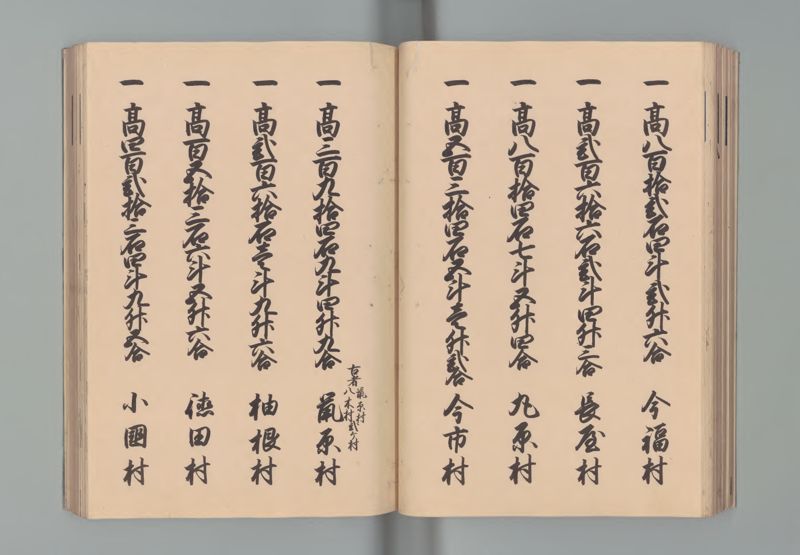 一 高八百拾弐石四斗弐升六合 今福村
一 高弐百六拾六石弐斗四升二合 長屋村
一 高八百拾四石七斗五升四合 丸原村
一 高五百三拾四石五斗壱升弐合 今市村
古者鼠原村
八木村弐ケ村
一 高三百九拾四石九斗四升九合 鼠原村
一 高弐百六拾石壱斗九升六合 柚根村
一 高百五拾三石六斗五升六合 徳田村
一 高四百弐拾三石四斗九升五合 小國村